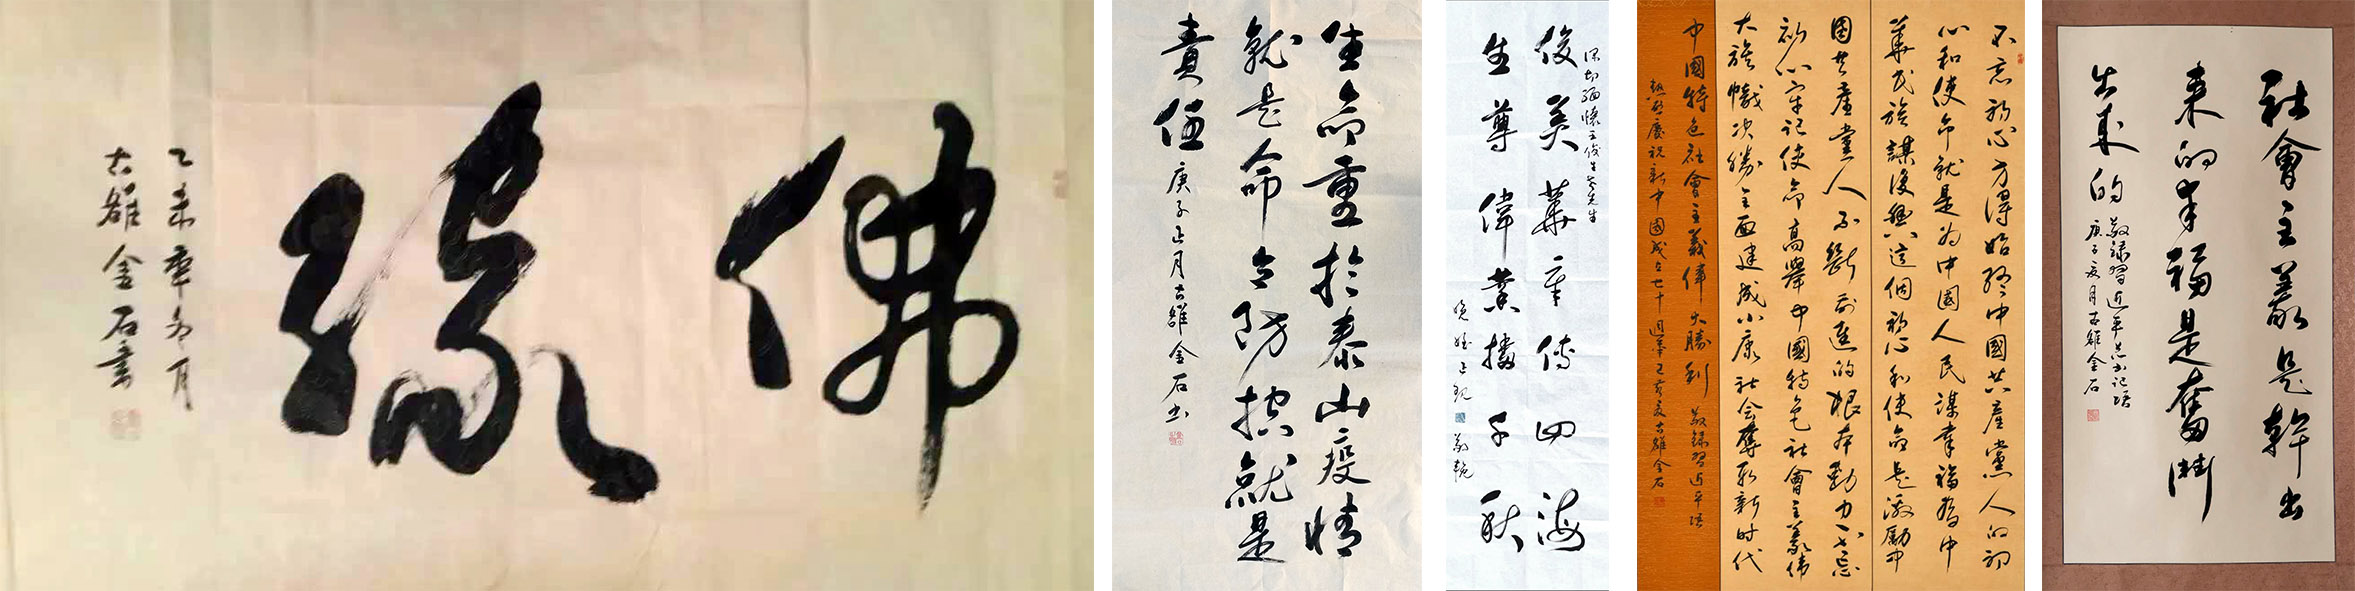 佛緣
乙未年冬月
古雒金石書
生命重於泰山疫情
就是命令防控就是
責任
庚子正月古雒金石书
深切缅懷王俊生老先生
俊美華章傳四海
生尊偉業播千秋
敬輓
不忘初心方得始终中國共產黨人的初
心和使命就是为中國人民謀幸福為中
華民族謀復興這個初心和使命是激勵中
國共產黨人不斷前進的根本動力不忘
初心牢記使命高舉中國特色社會主義偉
大旗幟决勝全面建成小康社会奪取新时代
中國特色社會主義偉大勝利 敬録習近平語
熱烈慶祝新中國成立七十週年己亥夏古雒金石
社會主義是幹出
来的幸福是奮鬥
出来的
敬録習近平总书记語
庚子夏月古雒金石